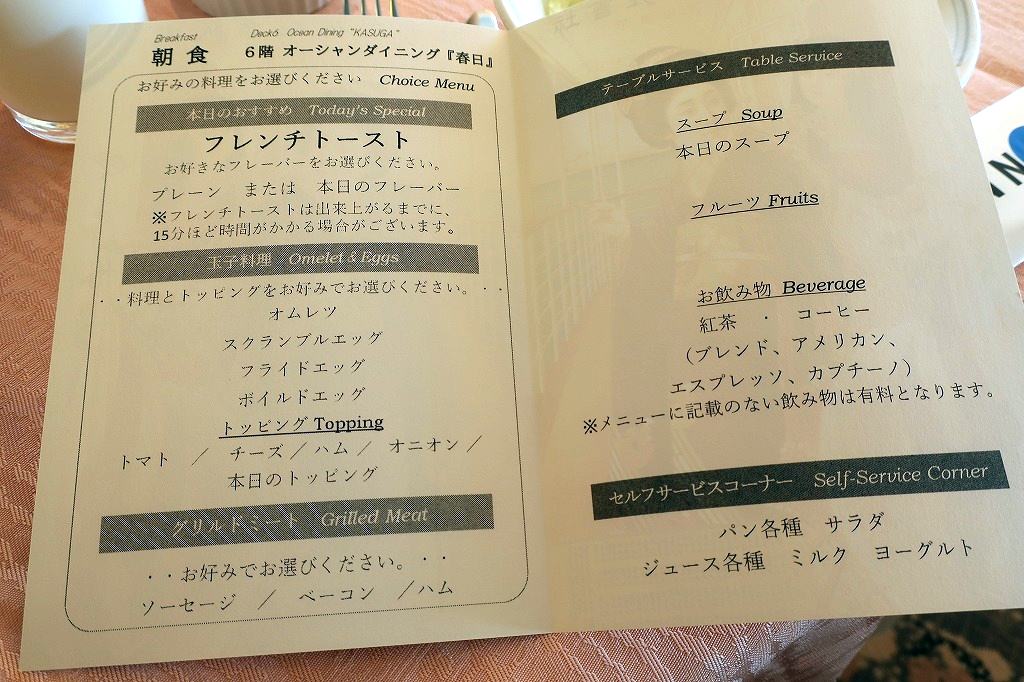 Breakfast Deck6 Ocean Dining "KASUGA"
朝食 6階 オーシャンダイニング『春日』
お好みの料理をお選びください Choice Menu
本日のおすすめ Today's Special
フレンチトースト
お好きなフレーバーをお選びください。
プレーン または 本日のフレーバー
※フレンチトーストは出来上がるまでに、
15分ほど時間がかかる場合がございます。
玉子料理 Omelet & Eggs
・・料理とトッピングをお好みでお選びください。・・
オムレツ
スクランブルエッグ
フライドエッグ
ボイルドエッグ
トッピング Topping
トマト ／ チーズ／ハム／ オニオン／
本日のトッピング
グリルドミート Grilled Meat
・・お好みでお選びください。・・
ソーセージ ／ ベーコン ／ハム
テーブルサービス Table Service
スープ Soup
本日のスープ
フルーツ Fruits
お飲み物 Beverage
紅茶 ・ コーヒー
（ブレンド、アメリカン、
エスプレッソ、カプチーノ）
※メニューに記載のない飲み物は有料となります。
セルフサービスコーナー Self-Service Corner
パン各種 サラダ
ジュース各種 ミルク ヨーグルト